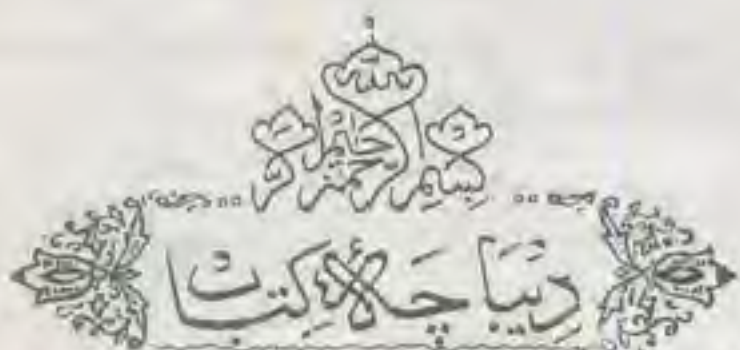 بسم الله الرحمن الرحيم
دیباچۂ کتاب